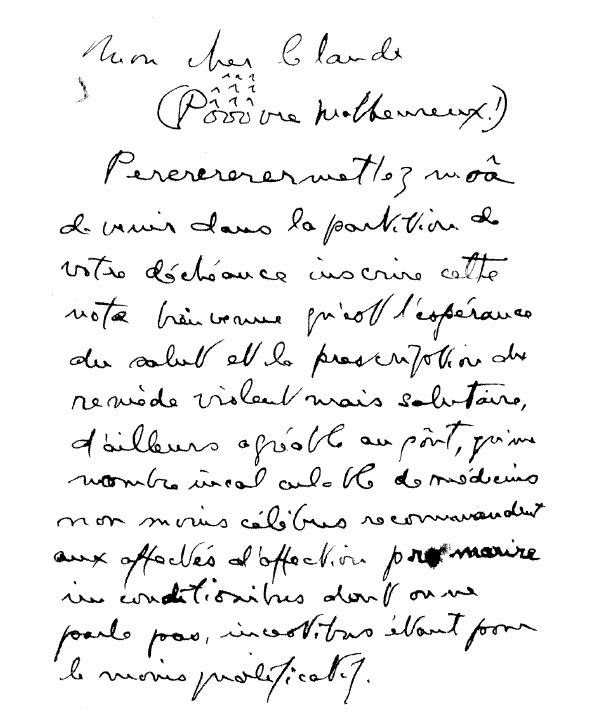 Mon cher Claude
(Pôôôvre malheureux!)
Perererermettez moâ
de venir dans la partition de
votre déchéance inscrire cette
note bienvenue qu'est l'espérance
du salut et la prescription du
remède violent mais salutaire,
d'ailleurs agréable au goût, qu'un
nombre incalculable de médecins
non moins célèbres recommandent
aux affectés d'affection
in conditionibus dont on ne
parle pas, incestibus étant pour
le moins prolificatif.